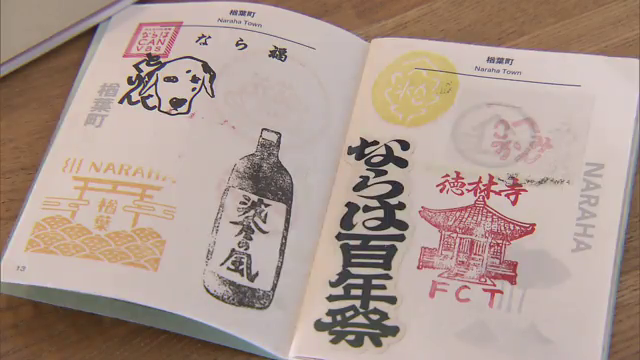 楢葉町
Naraha Town
ならは
CAN
vas
なら福
楢葉町
NARAHA
楢葉
の風
13
楢葉町
Naraha Town
ならは百年祭
徳林寺
FCT
NARAHA